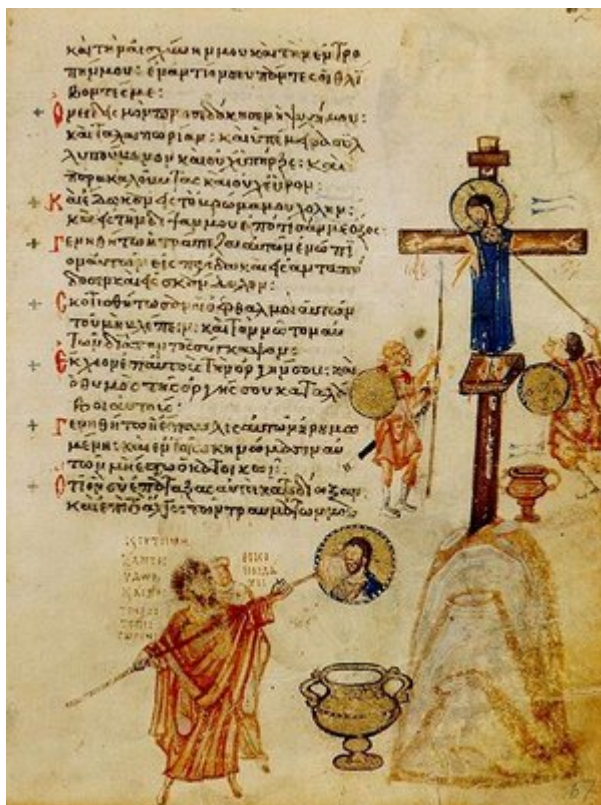 καὶ τὴν αἰσχύνην μου καὶ τὴν ἐντρο
πήν μου· ἐναντίον σου πάντες οἱ θλί
βοντές με:
Ὀνειδισμὸν προσεδόκησεν ἡ ψυχή μου:
καὶ ταλαιπωρίαν: καὶ ὑπέμεινα συλ
λυπούμενον καὶ οὐχ ὑπῆρξε: καὶ
παρακαλοῦντας καὶ οὐχ εὗρον:
Καὶ ἔδωκαν εἰς τὸ βρῶμά μου χολήν:
καὶ εἰς τὴν δίψαν μου ἐπότισάν με ὄξος:
Γενηθήτω ἡ τράπεζα αὐτῶν ἐνώπι
ον αὐτῶν εἰς παγίδα καὶ εἰς ἀνταπό
δοσιν καὶ εἰς σκάνδαλον:
Σκοτισθήτωσαν οἱ ὀφθαλμοὶ αὐτῶν
τοῦ μὴ βλέπειν: καὶ τὸν νῶτον αὐ
τῶν διὰ παντὸς σύγκαμψον:
Ἔκχεον ἐπ' αὐτοὺς τὴν ὀργήν σου: καὶ
ὁ θυμὸς τῆς ὀργῆς σου καταλά
βοι αὐτούς:
Γενηθήτω ἡ ἔπαυλις αὐτῶν ἠρημω
μένη: καὶ ἐν τοῖς σκηνώμασιν αὐ
τῶν μὴ ἔστω ὁ κατοικῶν:
Ὅτι ὃν σὺ ἐπάταξας αὐτοὶ κατεδίωξαν:
καὶ ἐπὶ τὸ ἄλγος τῶν τραυμάτων μου
67